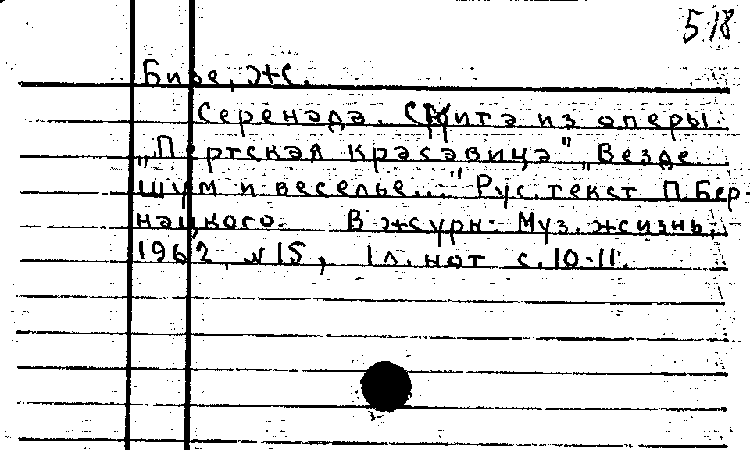 518
Бизе, Ж.
Серенада. Сюита из оперы
„Пертская красавица" „Везде
шум и веселье..." Рус. текст П. Бер-
нацкого. В журн.: Муз. жизнь,
1962, №15, 1 л. нот с. 10-11.